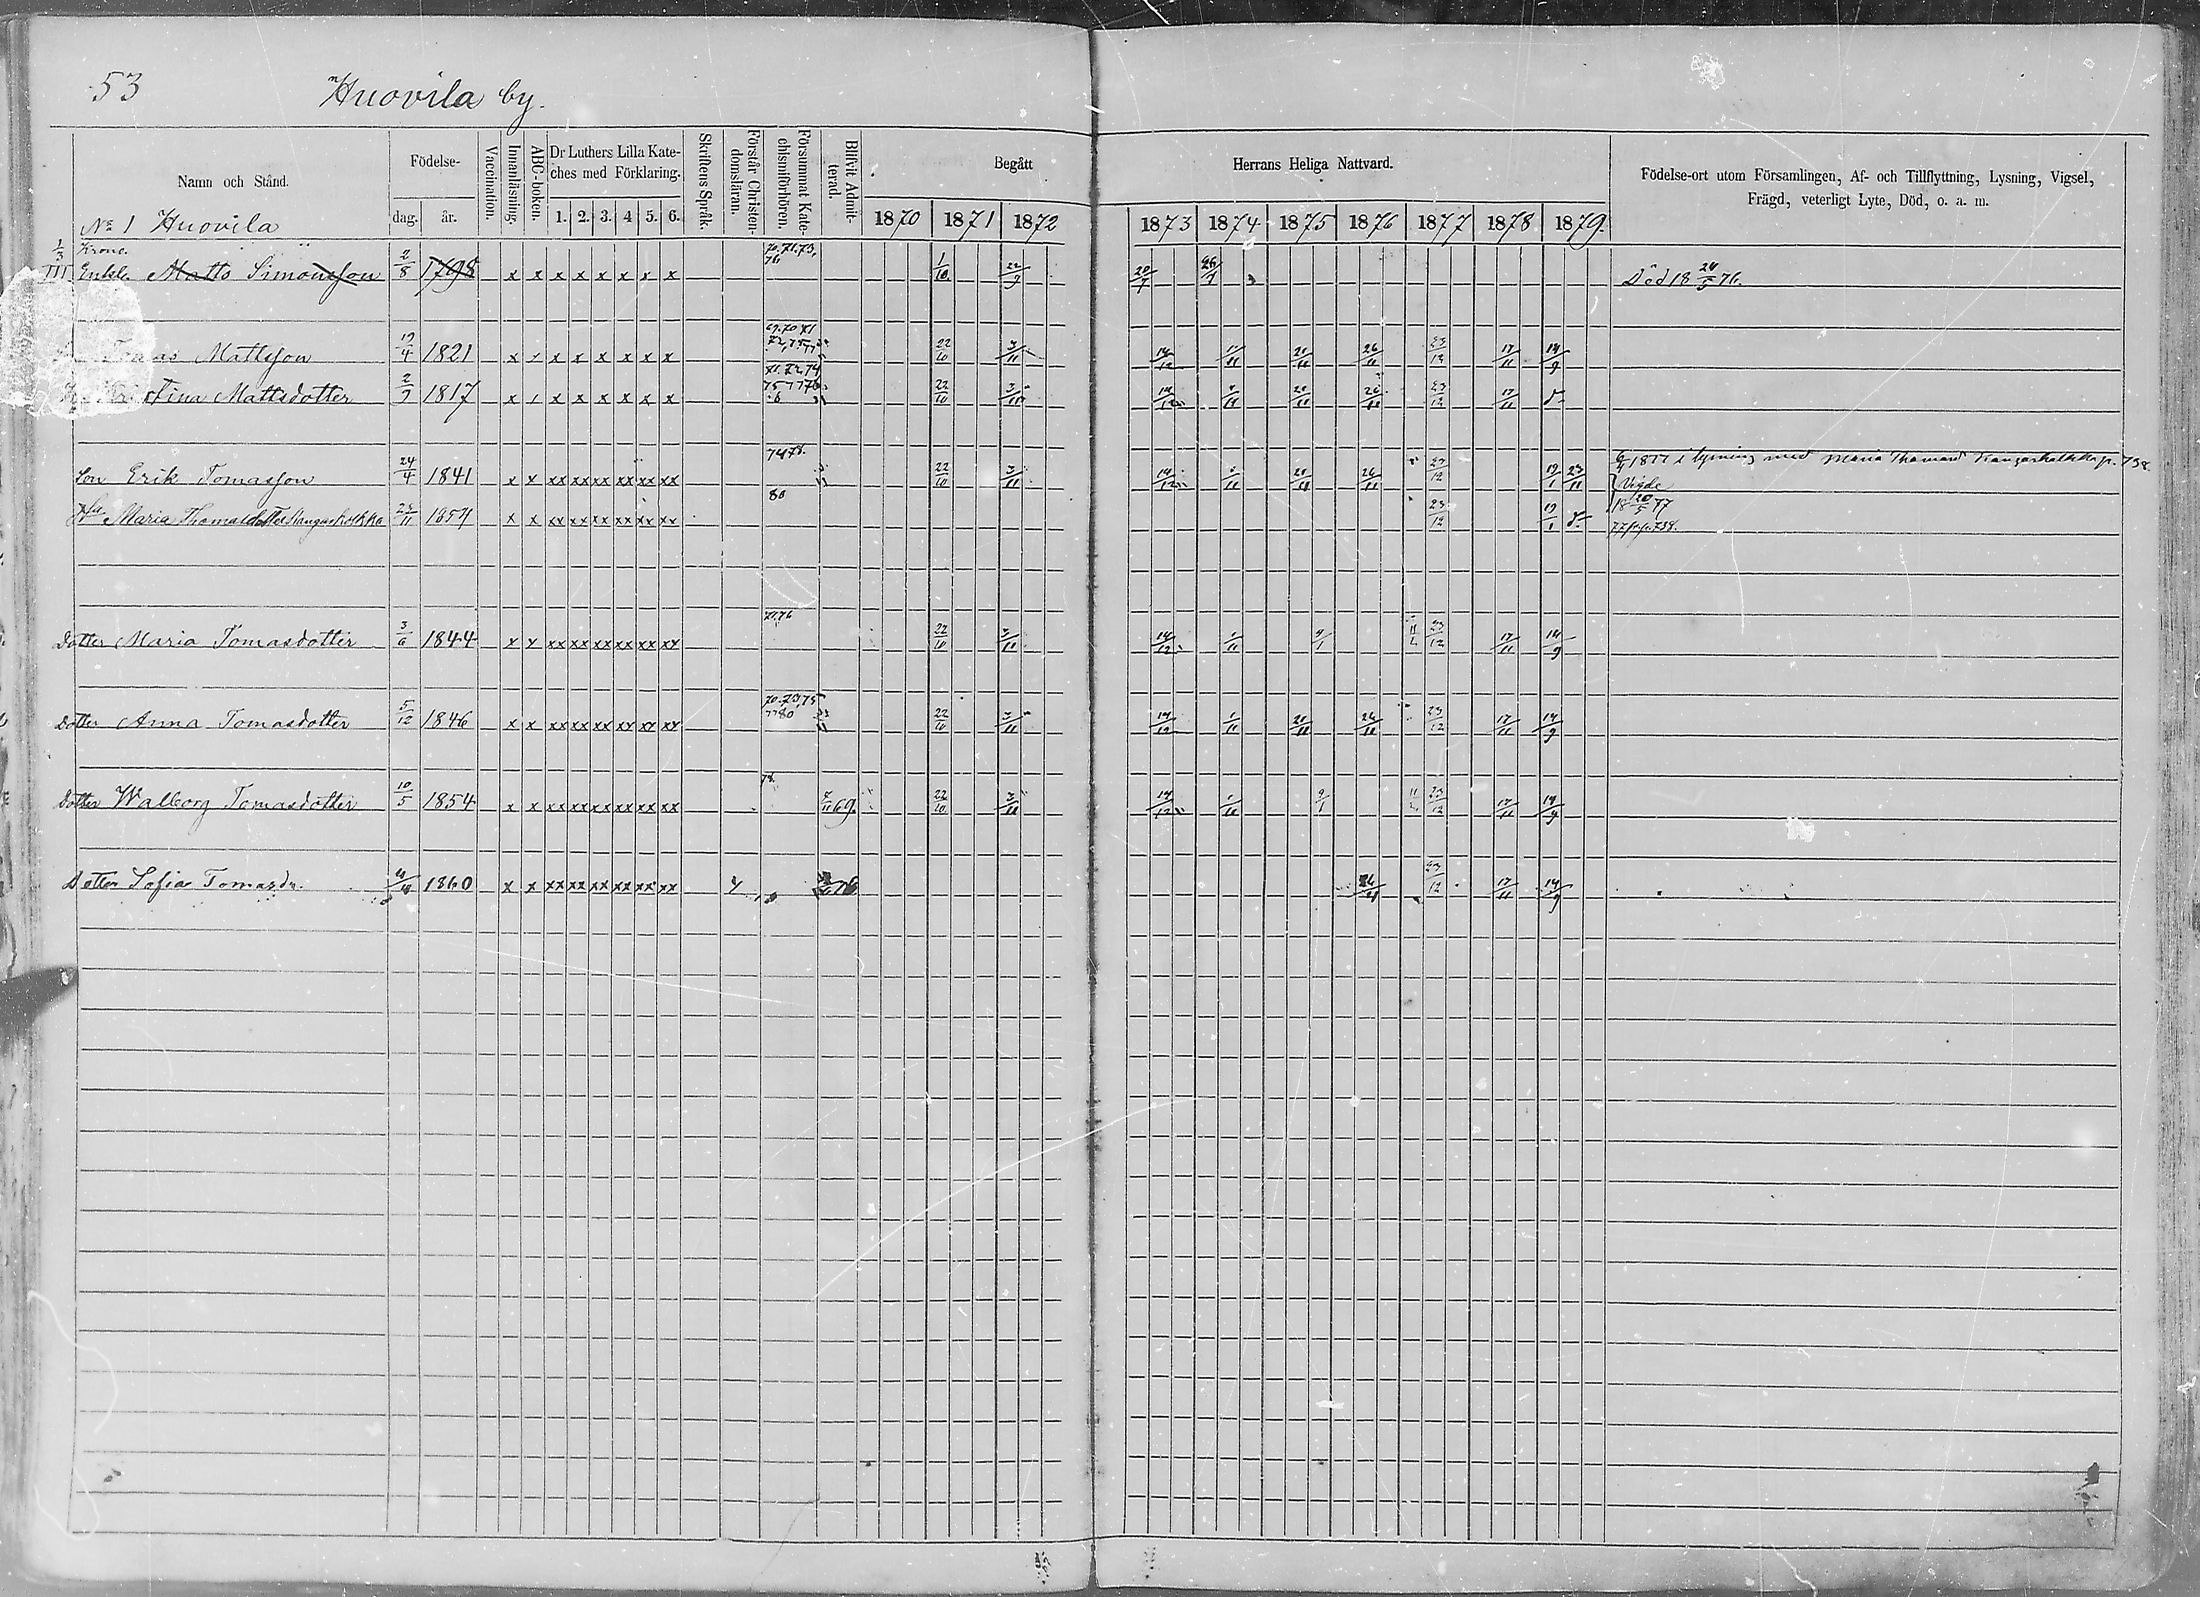 53 Huovila by.
Namn och Stånd.
Födelse-
dag. år.
Vaccination.
Innanläsning.
ABC-boken.
Dr Luthers Lilla Kate-
ches med Förklaring.
1. 2. 3. 4 5. 6.
Skriftens Språk.
Förstår Christen-
domsläran.
Försummat Kate-
chismiförhören.
Blifvit Admit-
terad.
Begått Herrans Heliga Nattvard.
1870 1871 1872 1873 1874 1875 1876 1877 1878 1879.
Födelse-ort utom Församlingen, Af- och Tillflyttning, Lysning, Vigsel,
Frägd, veterligt Lyte, Död, o. a. m.
No 1 Huovila
1/3 Krone.
III Enkl. Matts Simonsson 2/8 1798 x x x x x x x x 70.71.73. 76 1/10 22/9 20/7 26/7 Död 18 24/5 76.
Tomas Mattsson 19/4 1821 x x x x x x x x 69.70 71 22/10 3/11 14/12 1/11 21/11 26/11 23/12 17/11 14/9
Fina Mattsdotter 2/9 1817 x x x x x x x x 71.72,74 22/10 3/11 14/12 1/11 21/11 26/11 23/12 17/11
Son Erik Tomasson 24/4 1841 x x xx xx xx xx xx xx 74 78. 22/10 3/11 14/12 1/11 21/11 26/11 23/12 19/1 23/11 1877 i lysning med Maria Thomasd Kangaskokko p. 738
Hu Maria Thomasdotter Kangaskokko 23/11 1857 x x xx xx xx xx xx xx 80 23/12 19/1 Vigde
18 20/5 77
77 fr. p. 738.
Dotter Maria Tomasdotter 3/6 1844 x x xx xx xx xx xx xx 71.76 22/10 3/11 14/12 1/11 9/1 23/12 17/11 14/9
Dotter Anna Tomasdotter 5/12 1846 x x xx xx xx xx xx xx 70.73,75 77 80 22/10 3/11 14/12 1/11 21/11 26/11 23/12 17/11 14/9
Dotter Walborg Tomasdotter 10/5 1854 x x xx xx xx xx xx xx 78. 7/11 69. 22/10 3/11 14/12 1/11 9/1 23/12 17/11 14/9
Dotter Sofia Tomasdr. 1860 x x xx xx xx xx xx xx 76 26/11 23/12 17/11 14/9